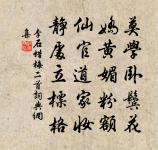 莫學卧鬢花
嬌黃媚粉額
仙官道家妝
靜處立標格
李石蜡梅二首詞典網
集